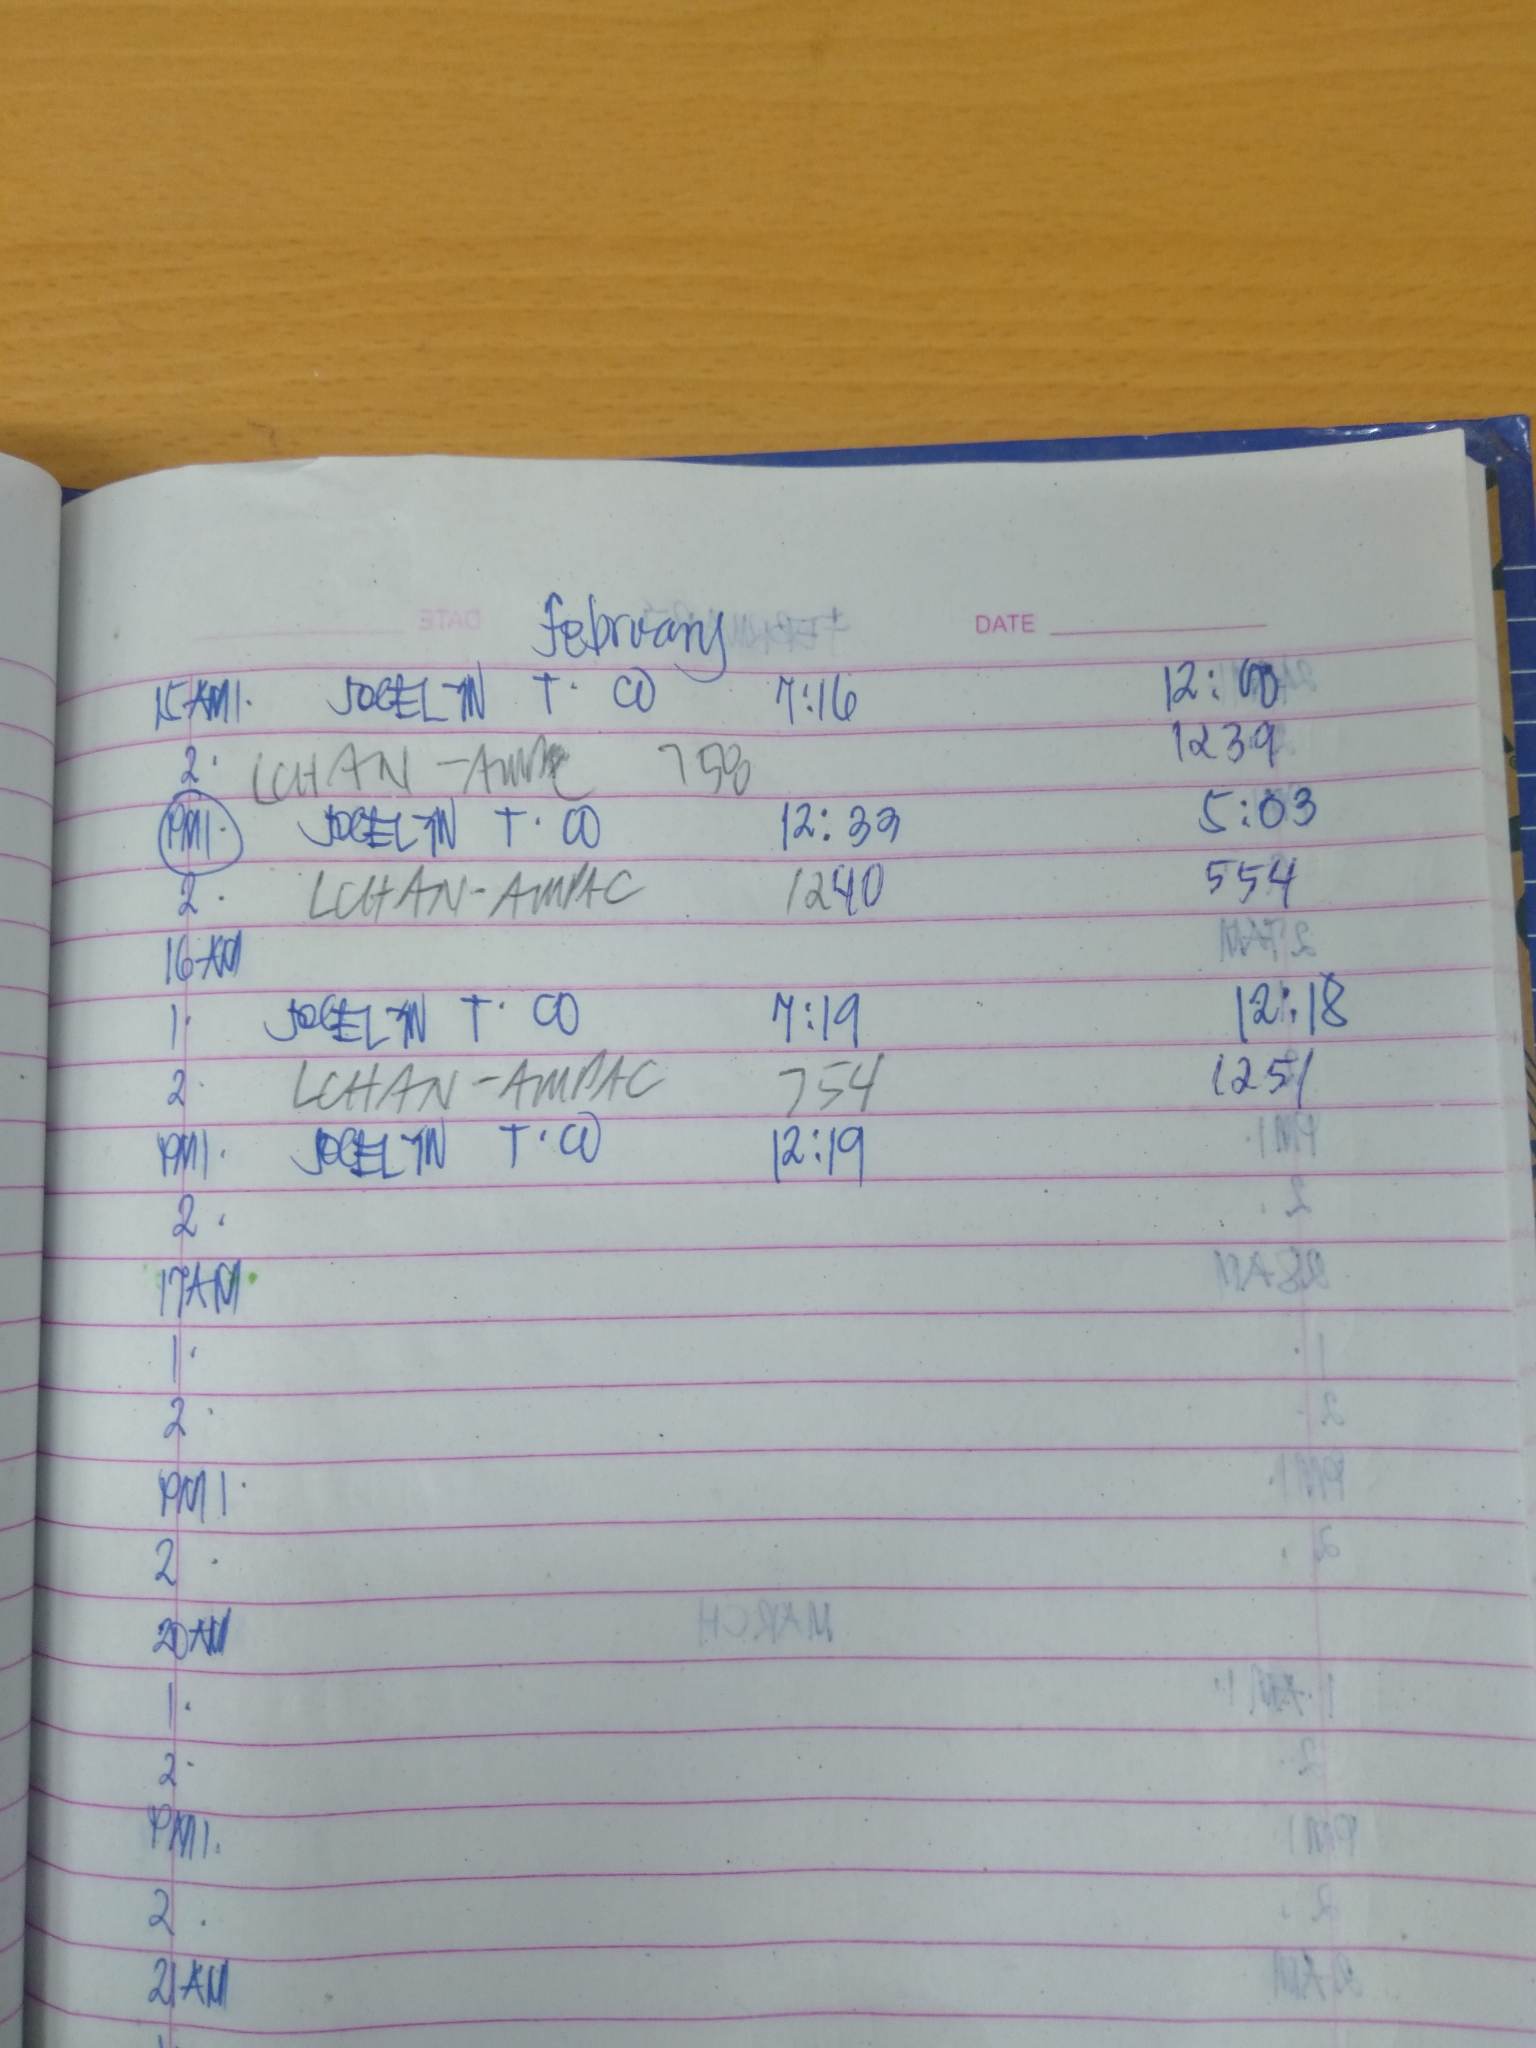 february DATE
15 AM 1. JOCELYN T. CO 7:16 12:10
2. LCHAN-AMPAC 758 1239
PM 1. JOCELYN T. CO 12:33 5:03
2. LCHAN-AMPAC 1240 554
16 AM
1. JOCELYN T. CO 7:19 12:18
2. LCHAN-AMPAC 754 1251
PM 1. JOCELYN T. CO 12:19
2.
17 AM
1.
2.
PM 1.
2.
20 AM
1.
2.
PM 1.
2.
21 AM